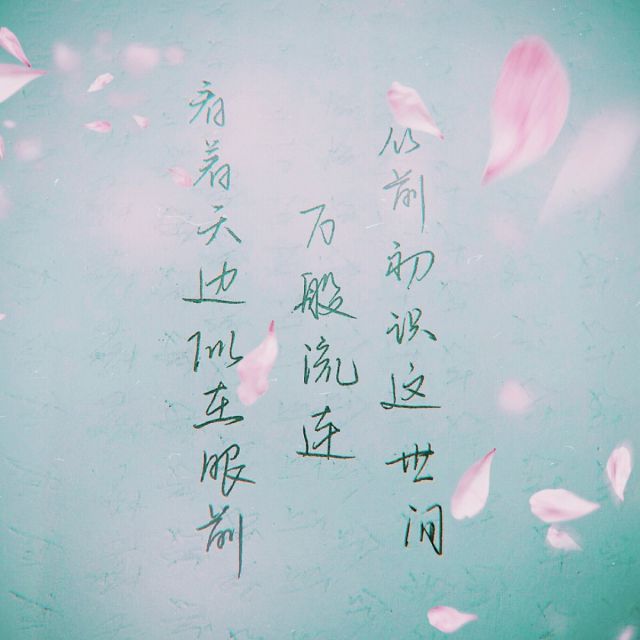 从前初识这世间
万般流连
看着天边似在眼前